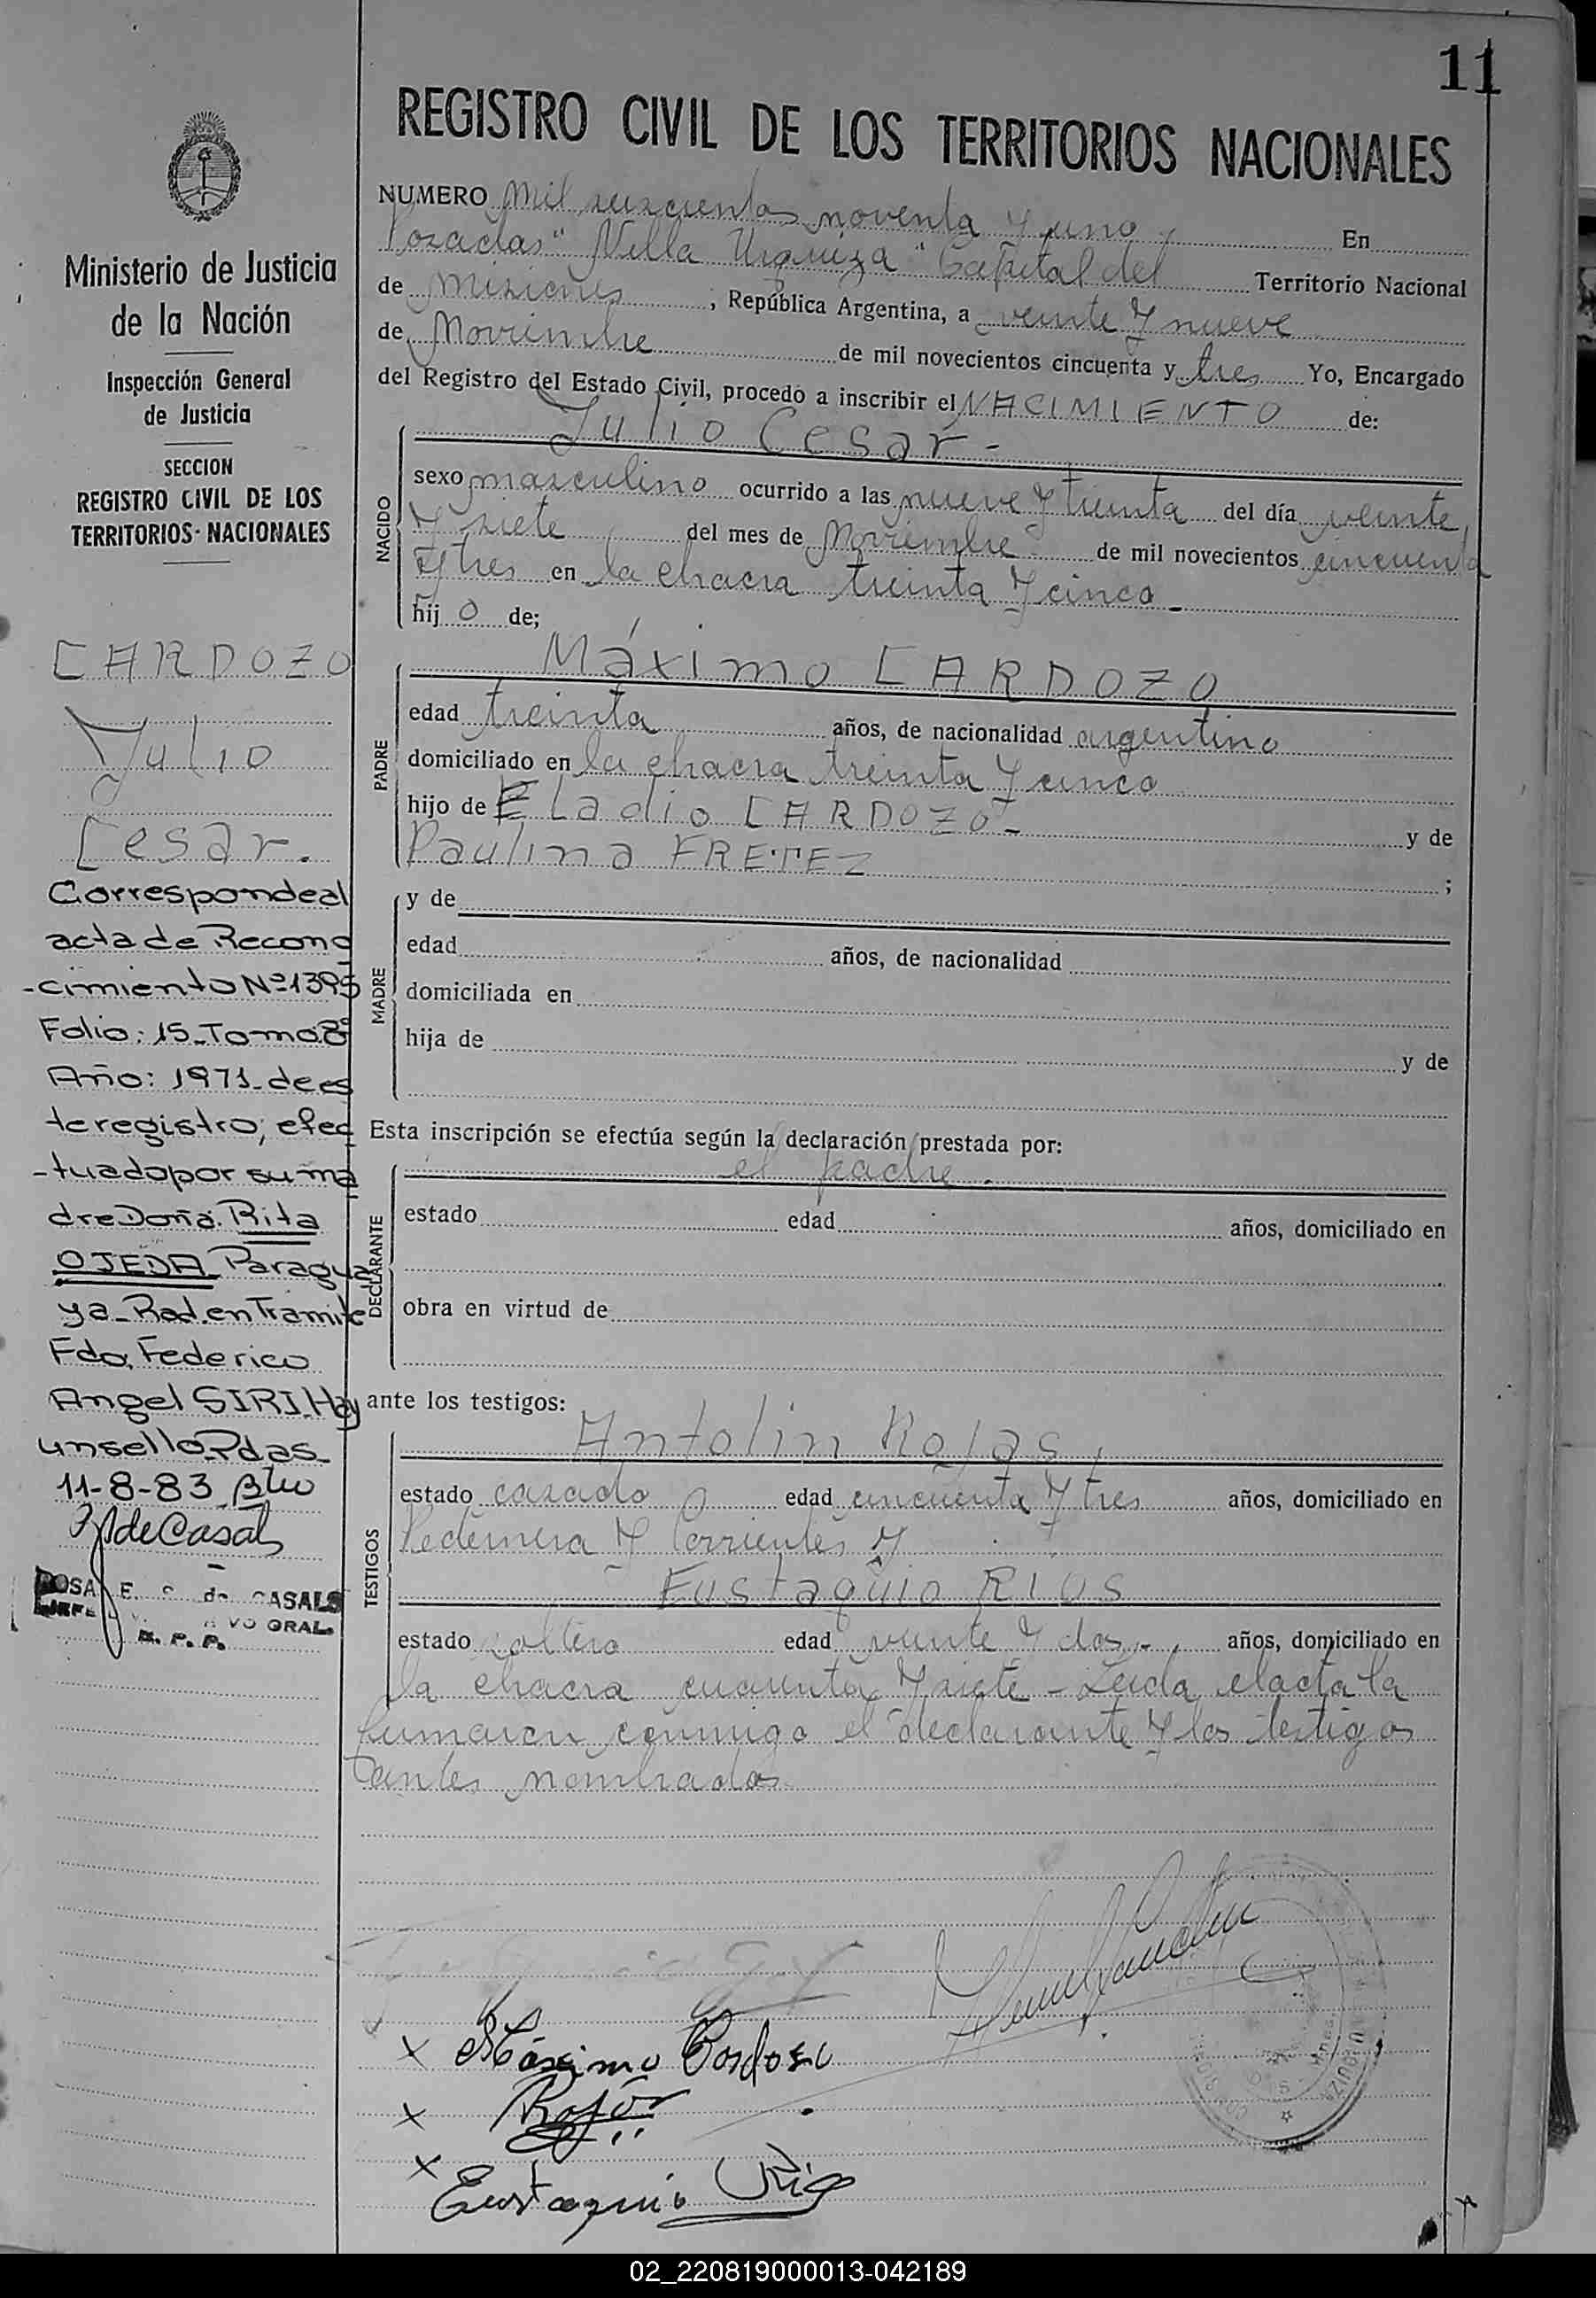 11
REGISTRO CIVIL DE LOS TERRITORIOS NACIONALES
Ministerio de Justicia
de la Nación
Inspección General
de Justicia
SECCION
REGISTRO CIVIL DE LOS
TERRITORIOS-NACIONALES
CARDOZO
Julio
Cesar.
Corresponde al
acta de Recono
-cimiento Nº 1395
Folio: 15_Tomo 8º
Año: 1971_de es
te registro; efec
-tuado por su ma
dre Doña. Rita
OJEDA Paragua
ya_Rad. en Tramite
Fdo. Federico
Angel SIRI. Hay
un sello_Pdas_
11-8-83
de Casals
ROSA E. de CASALS
JEFE GRAL.
R. P. P.
NUMERO Mil seiscientos noventa y uno, En
Posadas "Villa Urquiza" Capital del Territorio Nacional
de Misiones, República Argentina, a veinte y nueve
de Noviembre de mil novecientos cincuenta y tres Yo, Encargado
del Registro del Estado Civil, procedo a inscribir el NACIMIENTO de:
NACIDO
Julio Cesar-
sexo masculino ocurrido a las nueve y treinta del día veinte
y siete del mes de Noviembre de mil novecientos cincuenta
y tres en la chacra treinta y cinco-
hijo de;
PADRE
Máximo CARDOZO
edad treinta años, de nacionalidad argentino
domiciliado en la chacra treinta y cinco
hijo de Eladio CARDOZO- y de
Paulina FRETEZ ;
MADRE
y de
edad años, de nacionalidad
domiciliada en
hija de y de
Esta inscripción se efectúa según la declaración prestada por:
DECLARANTE
el padre.
estado edad años, domiciliado en
obra en virtud de
ante los testigos:
TESTIGOS
Antolin Rojas,
estado casado edad cincuenta y tres años, domiciliado en
Pedernera y Corrientes y
Eustaquio RIOS
estado soltero edad veinte y dos-, años, domiciliado en
la chacra cuarenta y siete - Leida el acta la
firmaron conmigo el declarante y los testigos
antes nombrados
x Máximo Cardozo
x Rojas
x Eustaquio Rio
02_220819000013-042189